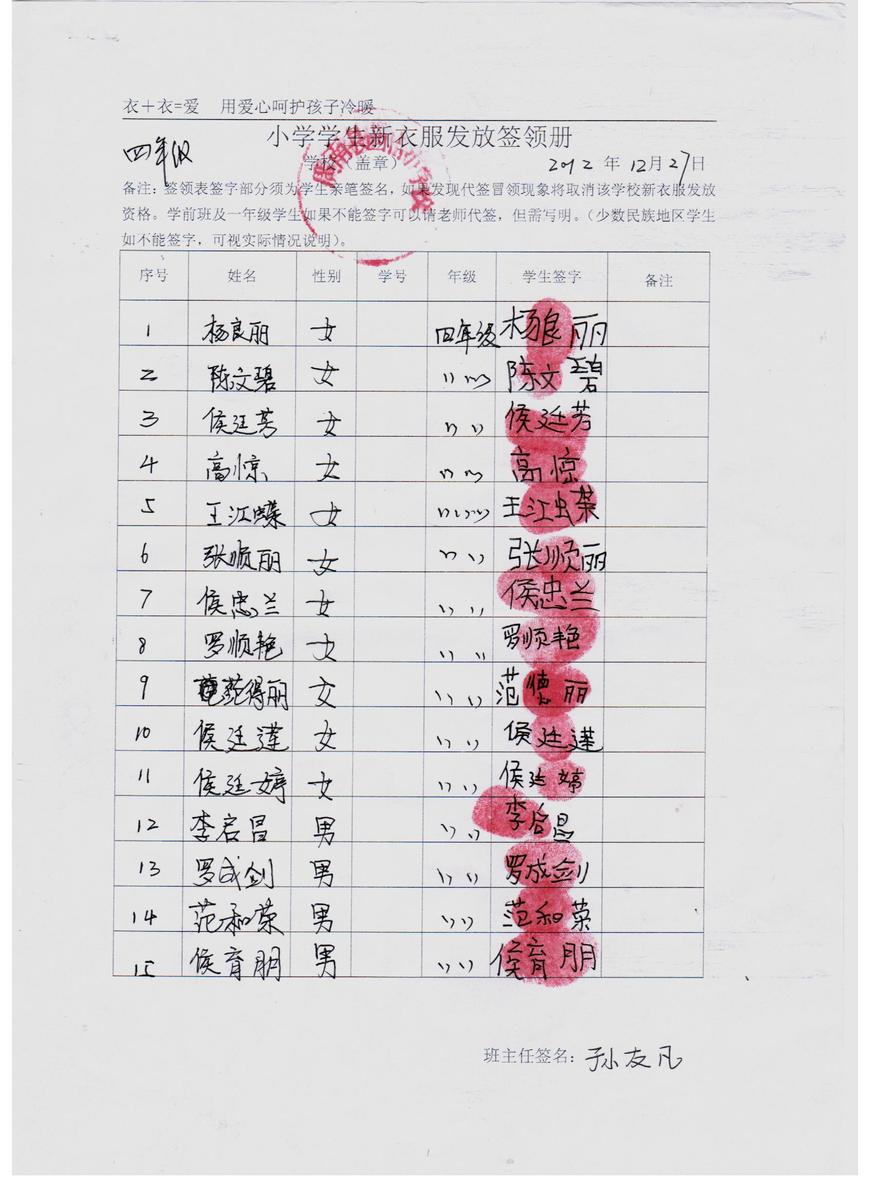 衣+衣=爱 用爱心呵护孩子冷暖
小学学生新衣服发放签领册
四年级 学校（盖章） 2012 年 12月27日
备注：签领表签字部分须为学生亲笔签名，如果发现代签冒领现象将取消该学校新衣服发放
资格。学前班及一年级学生如果不能签字可以请老师代签，但需写明。（少数民族地区学生
如不能签字，可视实际情况说明）。
序号 姓名 性别 学号 年级 学生签字 备注
1 杨良丽 女 四年级 杨良丽
2 陈文碧 女 〃 〃 陈文碧
3 侯廷芳 女 〃 〃 侯廷芳
4 高惊 女 〃 〃 高惊
5 王江蝶 女 〃 〃 王江蝶
6 张顺丽 女 〃 〃 张顺丽
7 侯忠兰 女 〃 〃 侯忠兰
8 罗顺艳 女 〃 〃 罗顺艳
9 范得丽 女 〃 〃 范德丽
10 侯廷莲 女 〃 〃 侯廷莲
11 侯廷婷 女 〃 〃 侯廷婷
12 李启昌 男 〃 〃 李启昌
13 罗成剑 男 〃 〃 罗成剑
14 范和荣 男 〃 〃 范和荣
15 侯育朋 男 〃 〃 侯育朋
班主任签名：孙友凡